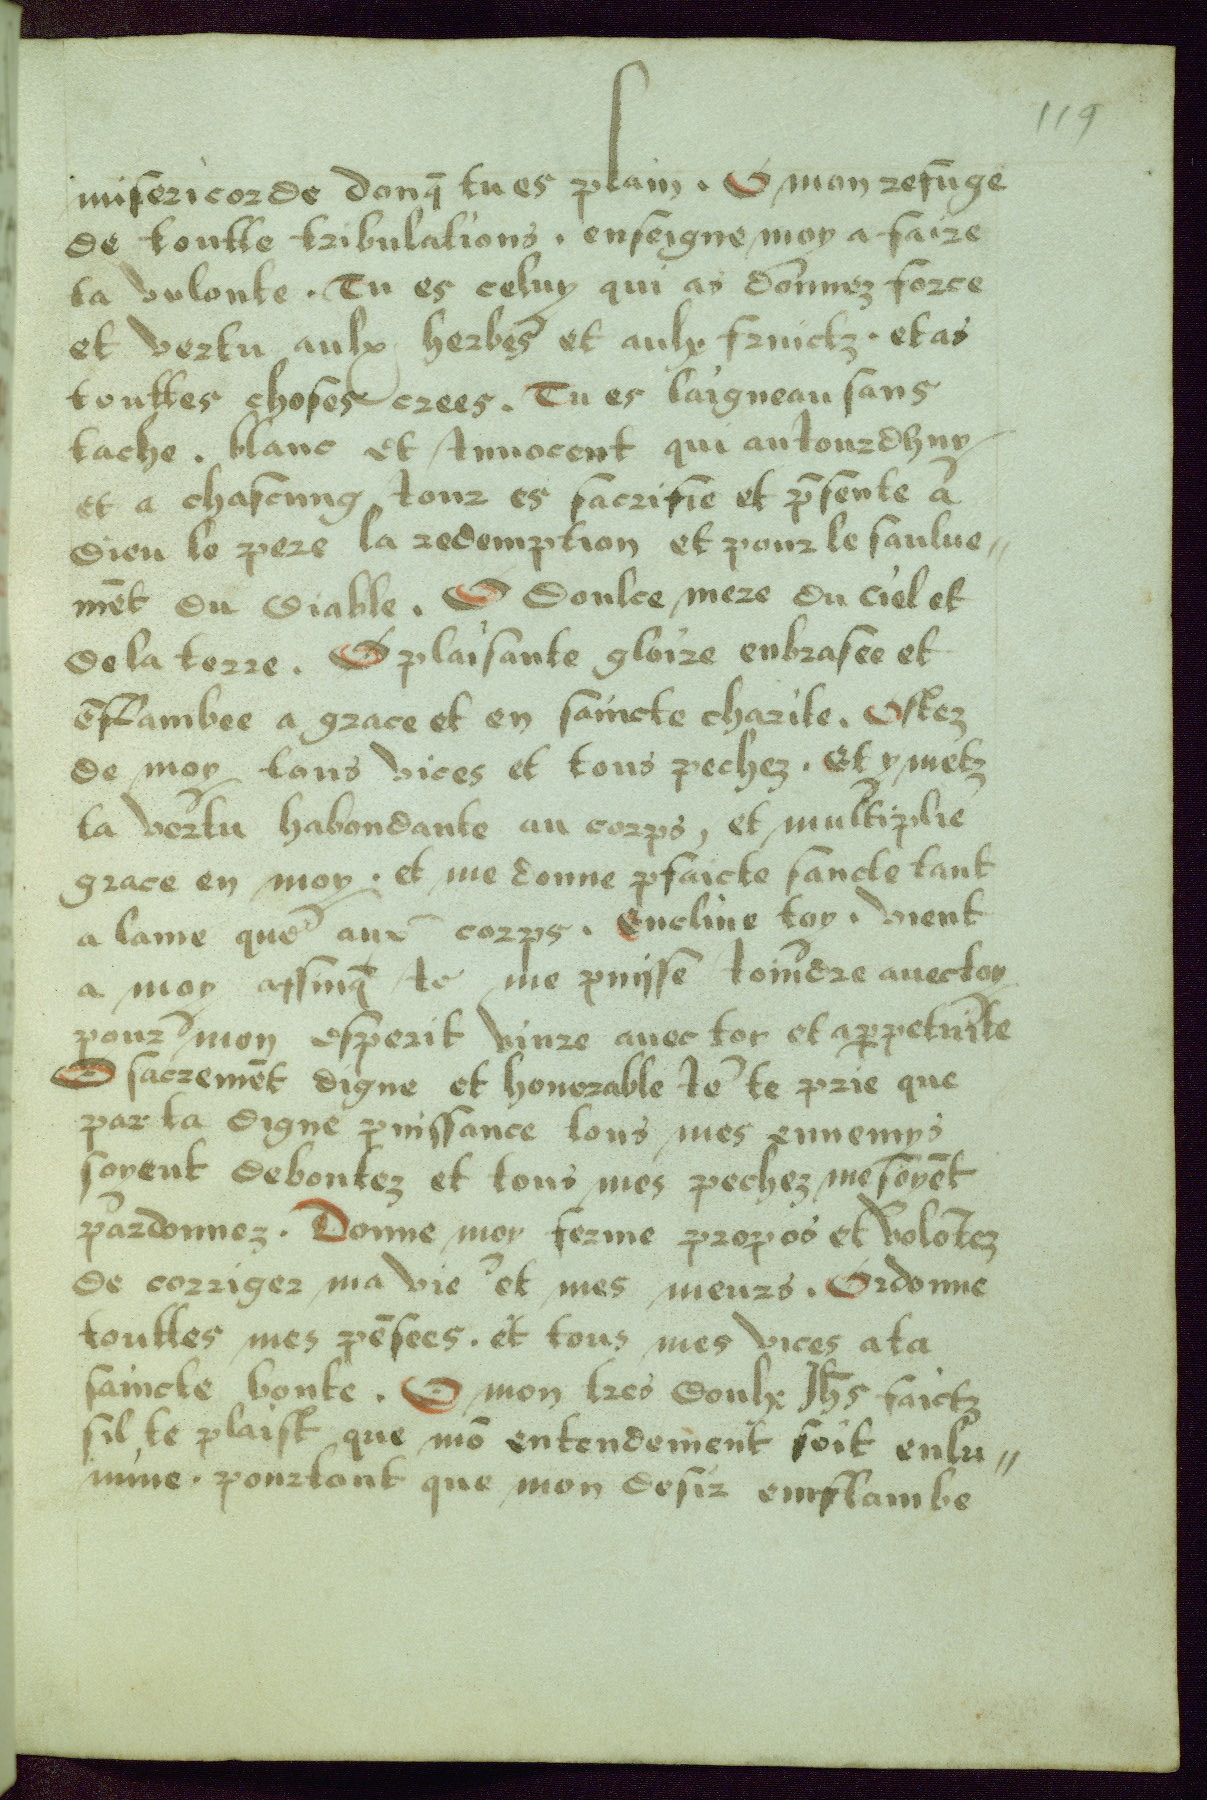 119
misericorde donq̃ tu es plain . O mon refuge
de toutte tribulations . enseigne moy a faire
ta volonte . Tu es celuy qui as donnez force
et vertu aulx herbes et aulx fruictz . et as
touttes choses crees . Tu es laigneau sans
tache . blanc et Innocent qui auiourdhuy
et a chascung iour es sacrifie et p̃sente a
dieu le pere la redemption et pour le saulue〃
mẽt du diable . O doulce mere du ciel et
de la terre . O plaisante gloire enbrasee et
ẽflambee a grace et en saincte charite . Ostez
de moy tous vices et tous pechez . Et y metz
ta vertu habondante au corps , et multiplie
grace en moy . et me donne pfaicte sancte tant
a lame que aux corps . Encline toy . vient
a moy affinq̃ ie me puisse ioindre auec toy
pour mon esperit viure auec toy et a ppetuite
O sacremẽt digne et honorable ie te prie que
par ta digne puissance tous mes ennemys
soyent deboutez et tous mes pechez me soyẽt
pardonnez . Donne moy ferme propos et volõtez
de corriger ma vie et mes meurs . Ordonne
touttes mes pẽsees . et tous mes vices a ta
saincte bonte . O mon tres doulx Jhs faictz
sil te plaist que mõ entendement soit enlu〃
mine . pourtant que mon desir emflambe